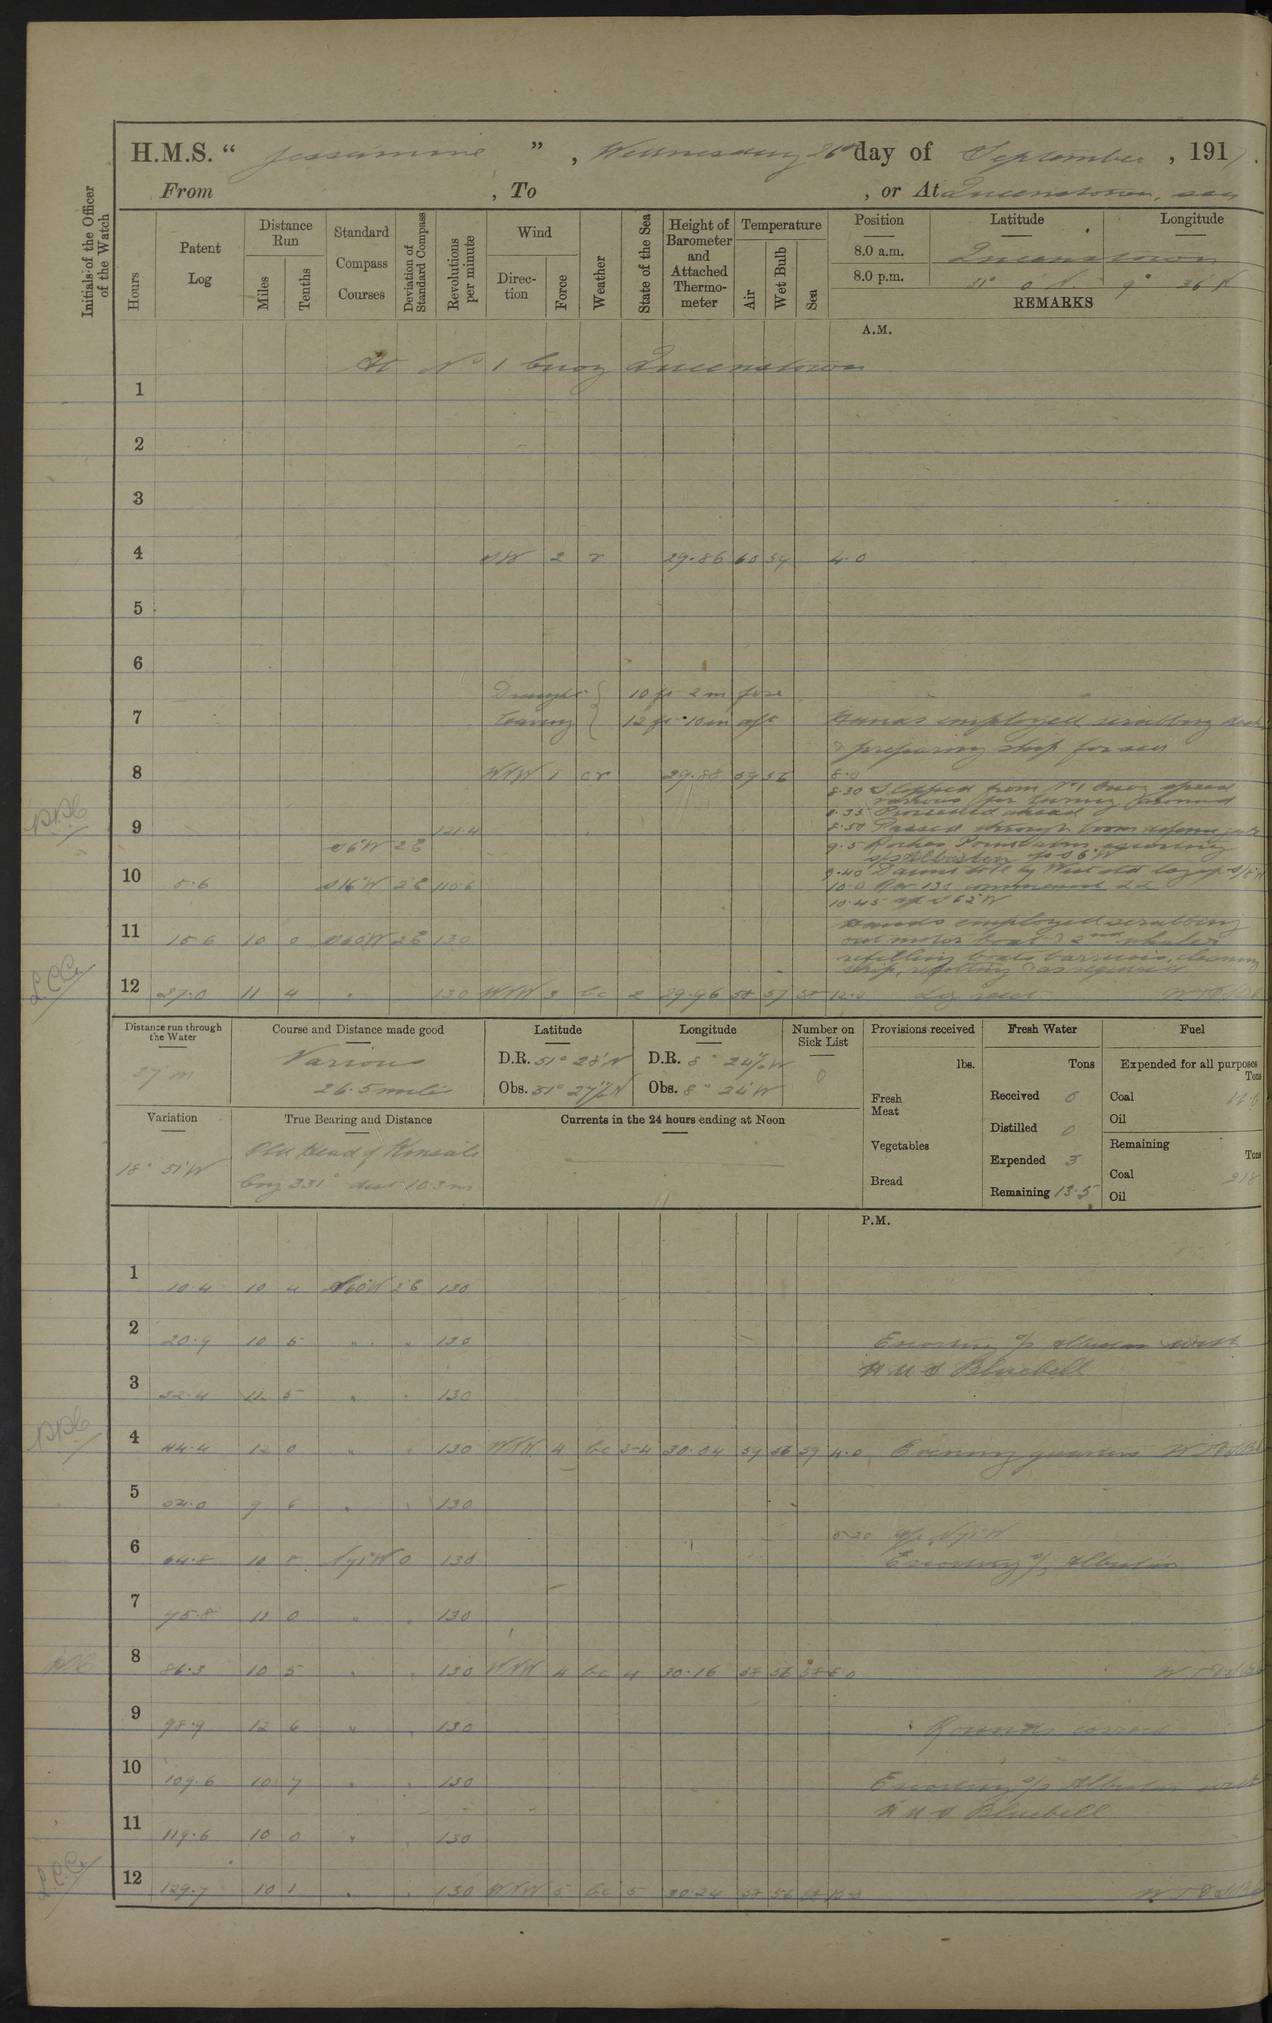 H.M.S. " Jessamine " , Wednesday 26th day of September , 1917.
From , To , or At Queenstown, sea
Initials of the Officer of the Watch
Hours
Patent Log
Distance Run
Miles
Tenths
Standard Compass Courses
Deviation of Standard Compass
Revolutions per minute
Wind
Direction
Force
Weather
State of the Sea
Height of Barometer and Attached Thermometer
Temperature
Air
Wet Bulb
Sea
Position Latitude Longitude
8.0 a.m. Queenstown
8.0 p.m. 51° 0 N. 9° 36 W
REMARKS
A.M.
At No 1 buoy Queenstown
1
2
3
4 SW 2 r 29.86 60 59 4.0
5
6
Draught leaving { 10 ft 2 in fore
12 ft 10 in aft
7 Hands employed scrubbing deck
& preparing ship for sea
8 WNW 1 cr 29.88 59 56 8.0
8.30 Slipped from No 1 buoy speed
various for turning around
8.35 Proceeded ahead
9 121.4 8.50 Passed through boom defence gate
S6W 2E 9.5 Roches Point abeam escorting
S/S Albistan S6°W
10 5.6 S16°W 2E 110.6
10.0 Rev 130 commenced ZZ
10.45 a/c S62°W
11 15.6 10 0 S60W 2E 130 Hands employed scrubbing
out motor boat & 2nd whaler
refilling boats barricois, cleaning
ship, refitting & as requisite
12 27.0 11 4 " 130 WNW 3 bc 2 29.96 58 57 58 12.0
Distance run through the Water
27 m
Course and Distance made good
Various
26.5 miles
Latitude
D.R. 51° 28' N
Obs. 51° 27½ N
Longitude
D.R. 8° 24½ W
Obs. 8° 24' W
Number on Sick List
0
Provisions received
lbs.
Fresh Meat
Vegetables
Bread
Fresh Water
Tons
Received 0
Distilled 0
Expended 3
Remaining 13.5
Fuel
Expended for all purposes
Tons
Coal
Oil
Remaining
Tons
Coal 218
Oil
Variation
18° 51' W
True Bearing and Distance
Old Head of Kinsale
brg 331° dist 10.3 m
Currents in the 24 hours ending at Noon
P.M.
1 10.4 10 4 N60W 2E 130
2 20.9 10 5 " " 130 Escorting S/S Albistan with
H M S Bluebell
3 32.4 11 5 " " 130
4 44.4 12 0 " " 130 WNW 4 bc 3-4 30.04 59 56 59 4.0 Evening quarters
5 54.0 9 6 " " 130
5.20 a/c N71°W
6 64.8 10 8 N71°W 0 130 Escorting S/S Albistan
7 75.8 11 0 " " 130
8 86.3 10 5 " " 130 WNW 4 bc 4 30.16 58 56 58 8.0
9 98.9 12 6 " " 130 Rounds correct
10 109.6 10 7 " " 130 Escorting S/S Albistan with
H M S Bluebell
11 119.6 10 0 " " 130
12 129.7 10 1 " " 130 WNW 5 bc 5 30.24 58 56 58 12.0